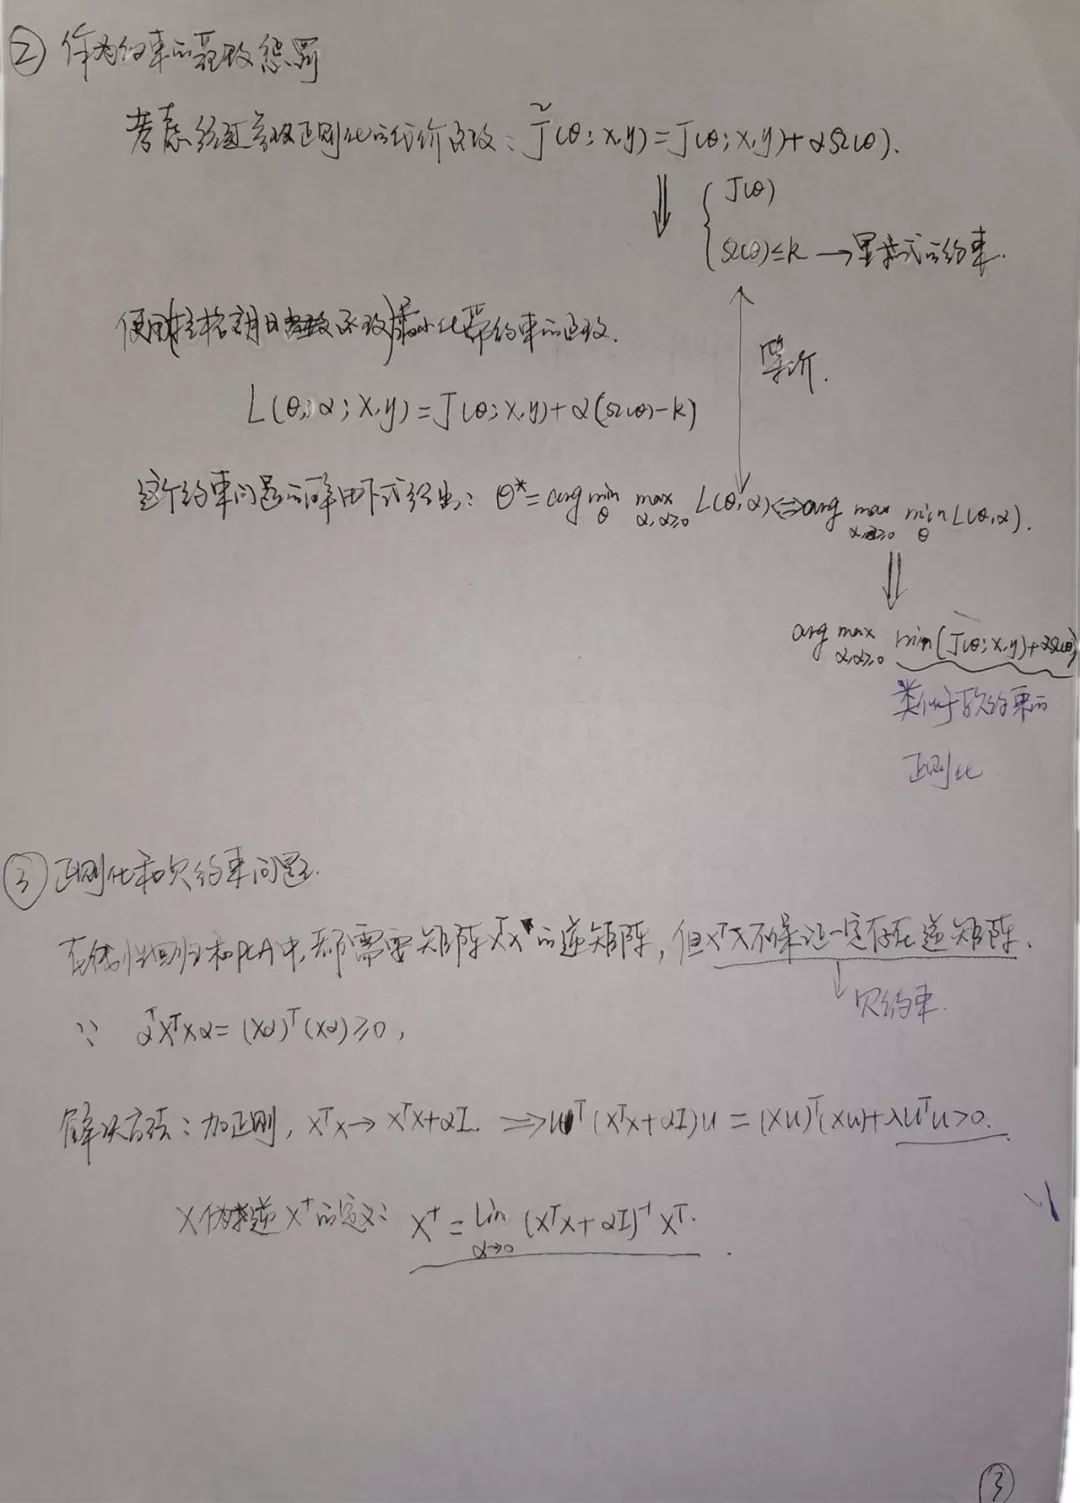 ② 作为约束的范数惩罚
考虑经过参数正则化的代价函数: J̃(θ;X,y)=J(θ;X,y)+αΩ(θ).
⇓ { J(θ)
Ω(θ)≤k → 显式的约束.
使用(拉格朗日函数)最小化带约束的函数.
等价.
L(θ,α;X,y)=J(θ;X,y)+α(Ω(θ)-k)
这个约束问题的解由下式给出: θ*=arg min_θ max_{α,α≥0} L(θ,α)⇔arg max_{α,α≥0} min_θ L(θ,α).
⇓
arg max_{α,α≥0} min(J(θ;X,y)+αΩ(θ))
类似于欠约束的
正则化
③ 正则化和欠约束问题.
在线性回归和PCA中,都需要矩阵XᵀX的逆矩阵,但XᵀX不保证一定存在逆矩阵.
↓ 欠约束.
∵ αᵀXᵀXα=(Xα)ᵀ(Xα)≥0,
解决方法:加正则, XᵀX→XᵀX+αI. ⇒uᵀ(XᵀX+αI)u=(Xu)ᵀ(Xu)+λuᵀu>0.
X伪逆X⁺的定义: X⁺=lim_{α→0}(XᵀX+αI)⁻¹Xᵀ.
③